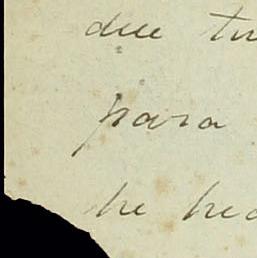 due tu
para
he hec